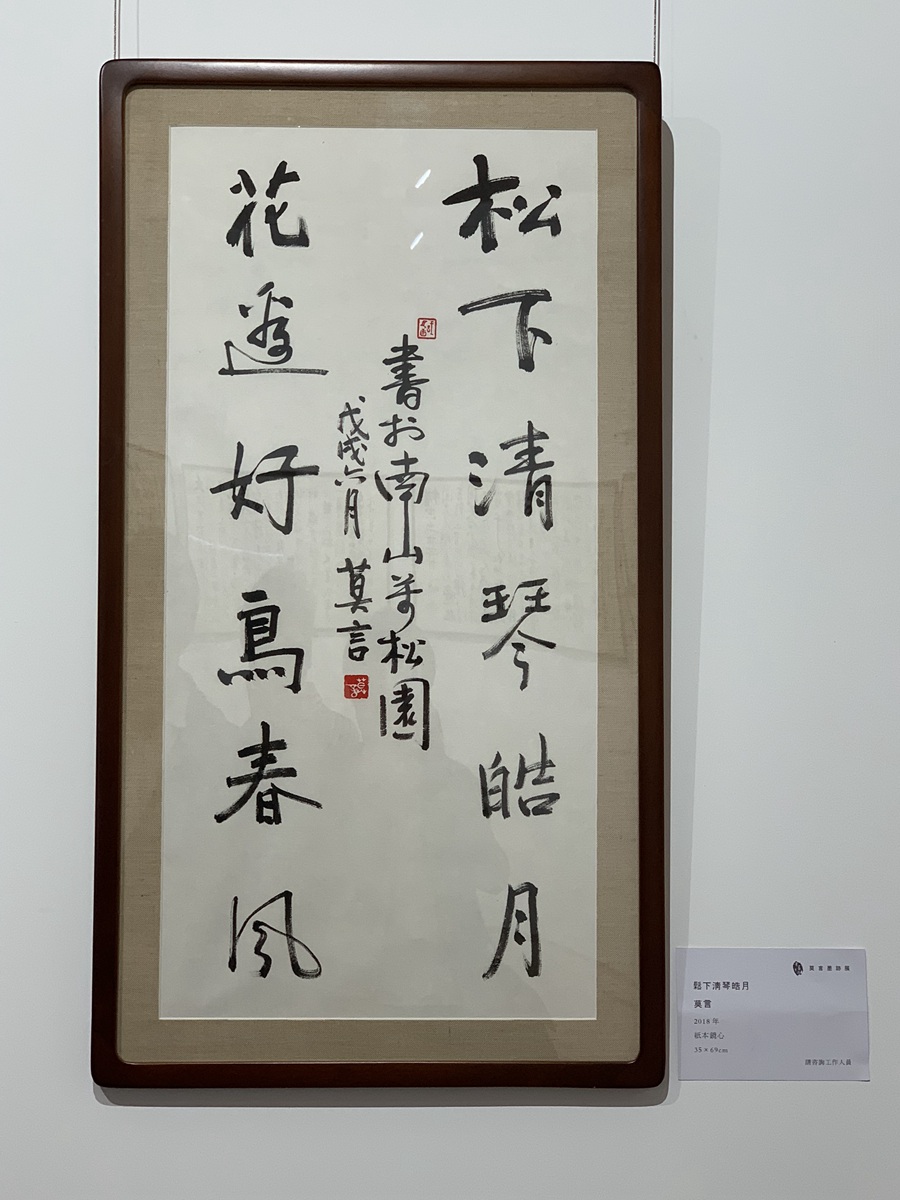 松下清琴皓月
花邊好鳥春風
書於南山萬松園
戊戌六月 莫言
莫言墨跡展
鬆下清琴皓月
莫言
2018 年
紙本鏡心
35×69cm
請咨詢工作人員